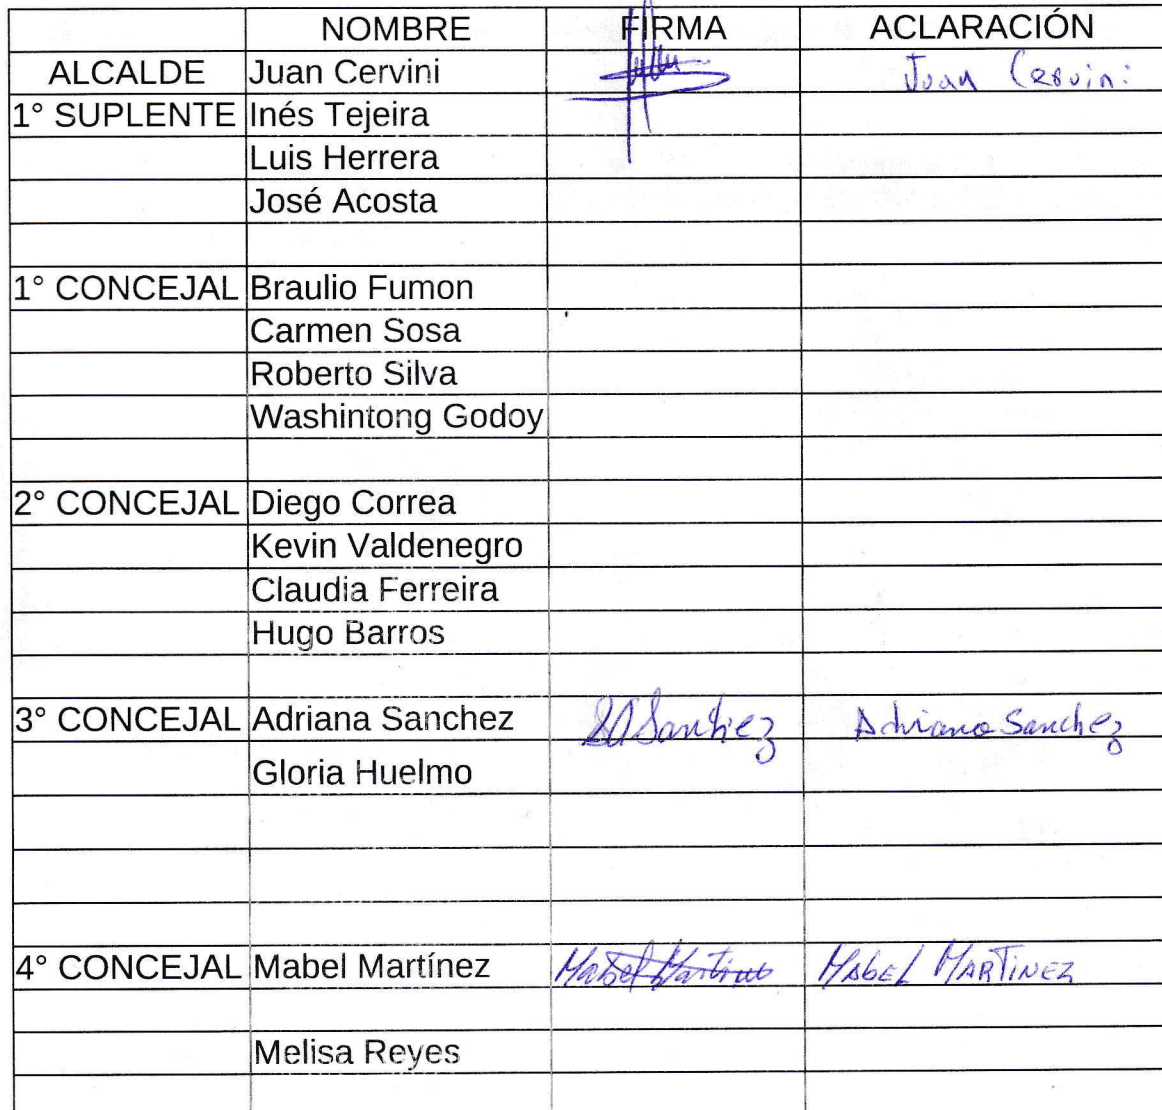 NOMBRE FIRMA ACLARACIÓN
ALCALDE Juan Cervini Juan Cervini
1° SUPLENTE Inés Tejeira
Luis Herrera
José Acosta
1° CONCEJAL Braulio Fumon
Carmen Sosa
Roberto Silva
Washintong Godoy
2° CONCEJAL Diego Correa
Kevin Valdenegro
Claudia Ferreira
Hugo Barros
3° CONCEJAL Adriana Sanchez Sanchez Adriana Sanchez
Gloria Huelmo
4° CONCEJAL Mabel Martínez Mabel Martinez MABEL MARTINEZ
Melisa Reyes